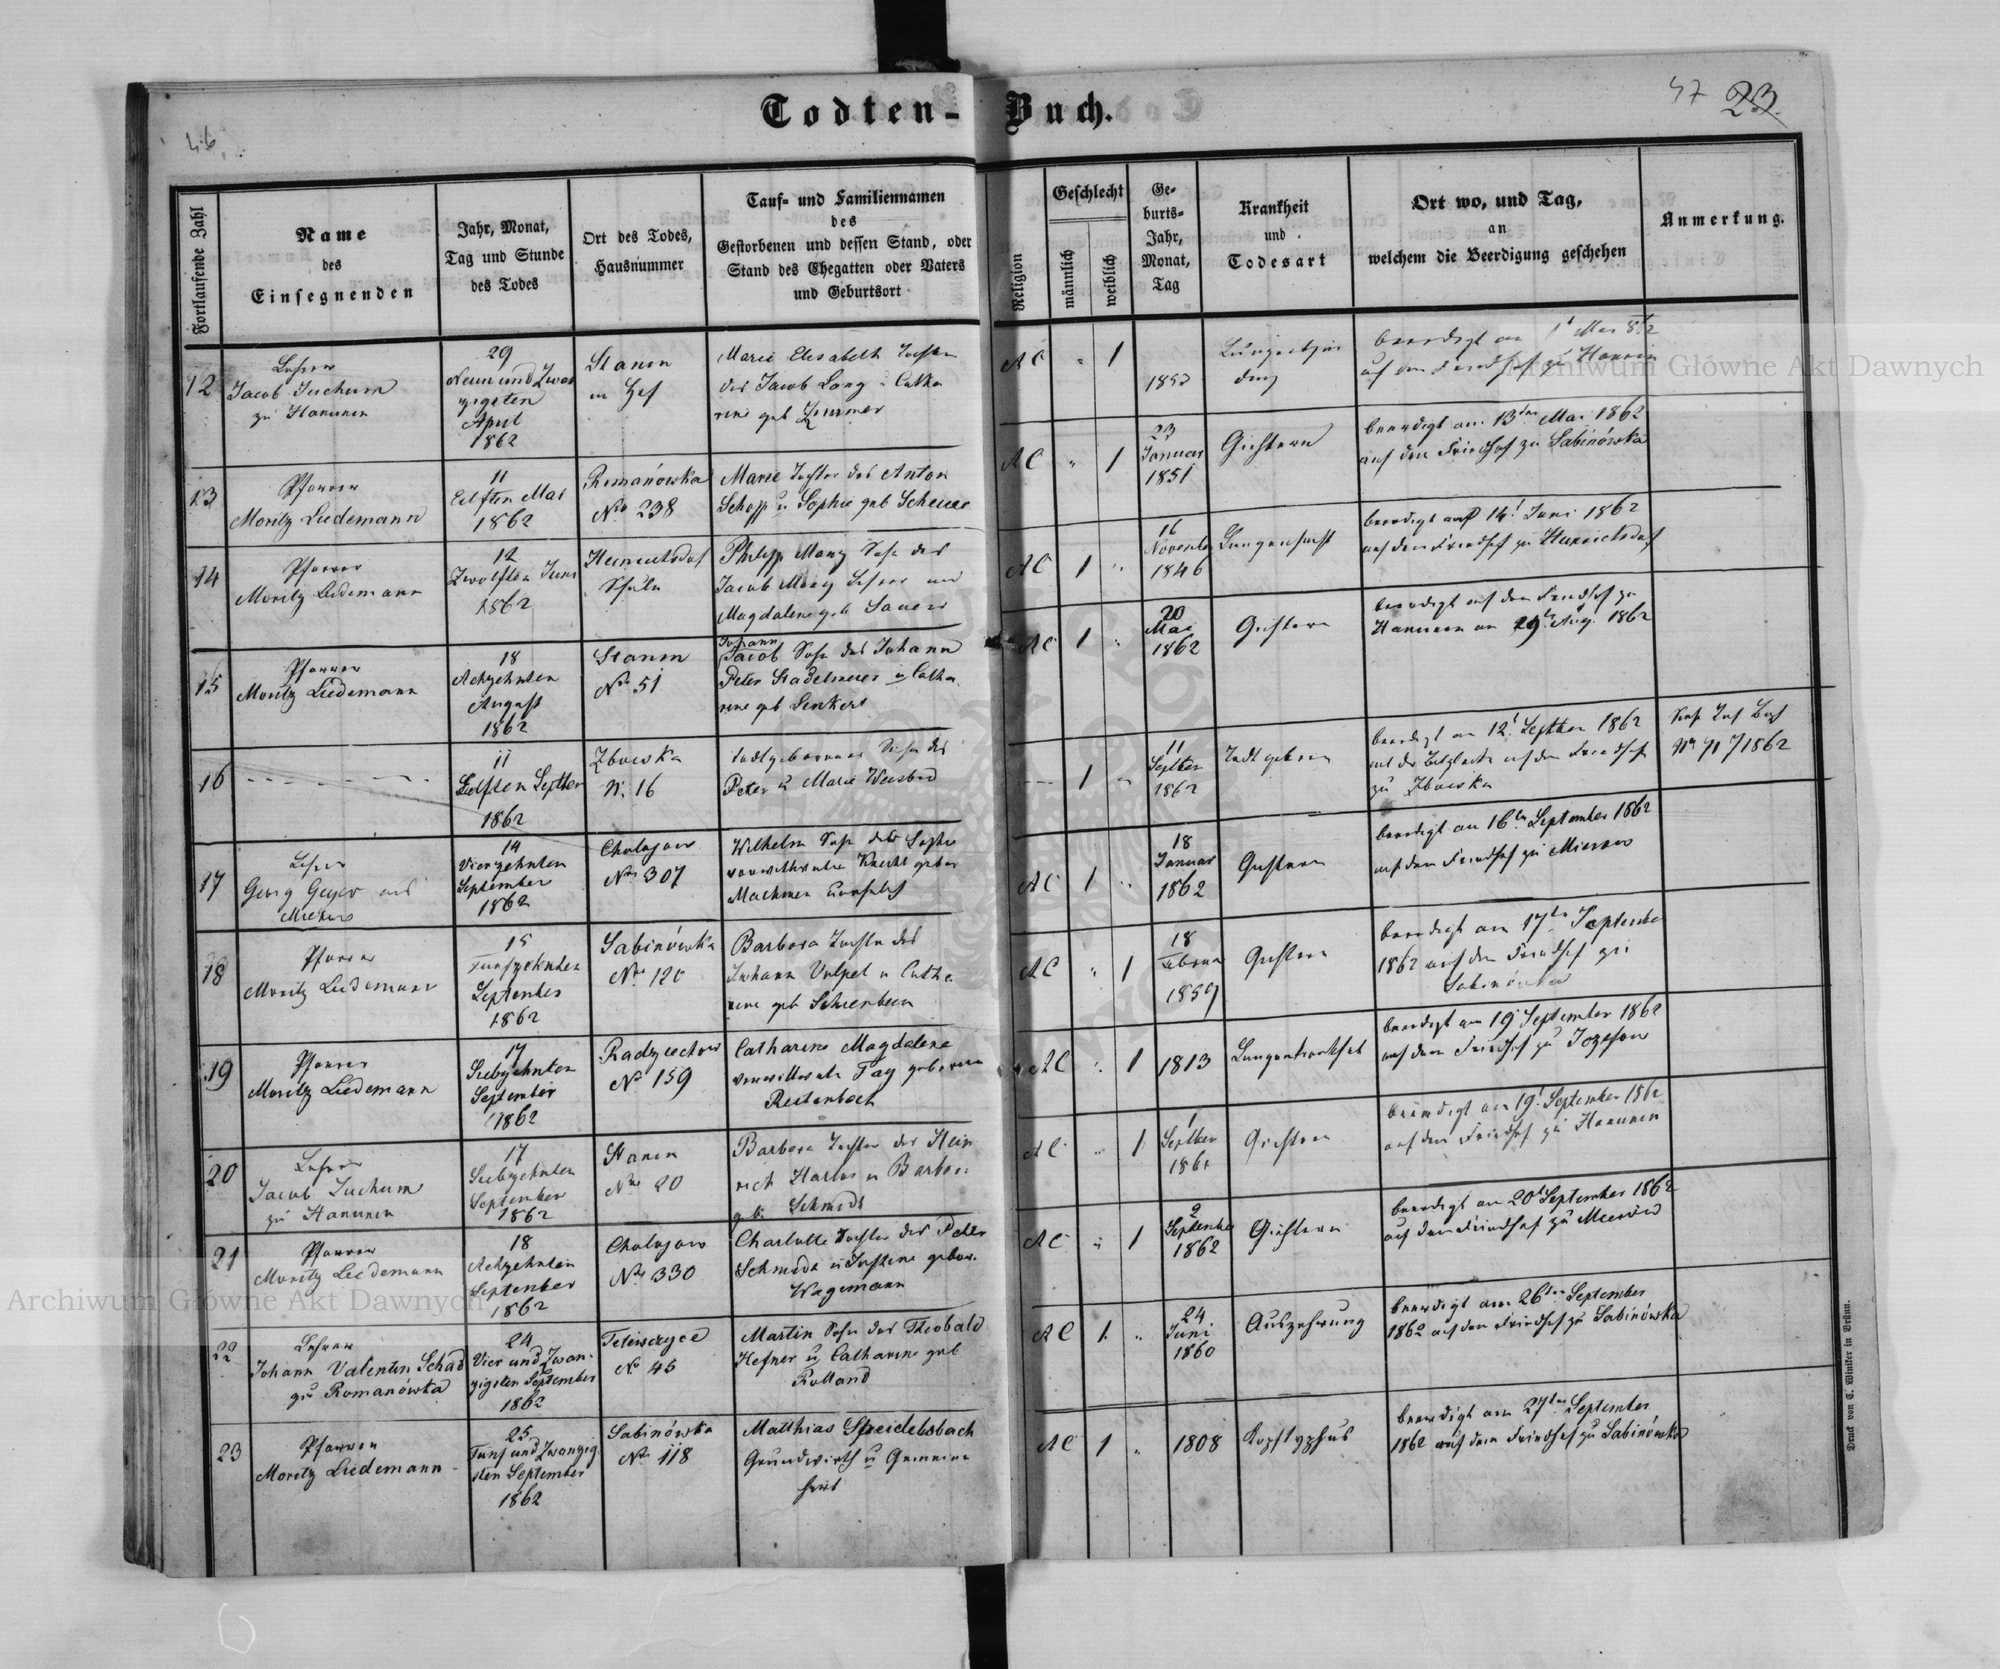 46
Todten-Buch.
47 23.
Fortlaufende Zahl
Name
des
Einsegnenden
Jahr, Monat,
Tag und Stunde
des Todes
Ort des Todes,
Hausnummer
Tauf- und Familiennamen
des
Gestorbenen und dessen Stand, oder
Stand des Ehegatten oder Vaters
und Geburtsort
Religion
Geschlecht
männlich
weiblich
Ge-
burts-
Jahr,
Monat,
Tag
Krankheit
und
Todesart
Ort wo, und Tag,
an
welchem die Beerdigung geschehen
Anmerkung.
12
Lehrer
Jacob Juchum
zu Hanunin
29
Neun und Zwan
zigsten
April
1862
Stanin
im Hof
Marie Elisabeth Tochter
des Jacob Lang u Catha
rine geb Zimmer
AC
"
1
beerdigt am 1t Mai 862
auf dem Friedhof zu Hanunin
13
Pfarrer
Moritz Liedemann
11
Eilften Mai
1862
Romanówka
No 238
Marie Tochter des Anton
Schopp u Sophie geb Scheuer
AC
"
1
23
Januar
1851
Gichtern
beerdigt am 13ten Mai 1862
auf dem Friedhof zu Sabinówka
14
Pfarrer
Moritz Liedemann
12
Zwölften Juni
1862
Heinrichsdorf
Schule
Philipp Manz Sohn des
Jacob Manz Lehrer und
Magdalene geb Sauer
AC
1
"
16
November
1846
Lungensucht
beerdigt am 14t Juni 1862
auf dem Friedhof zu Heinrichsdorf
15
Pfarrer
Moritz Liedemann
18
Achzehnten
August
1862
Stanin
No 51
Johann
Jacob Sohn des Johann
Peter Stadelmeier u Catha
rine geb Senkert
AC
1
"
20
Mai
1862
Gichtern
beerdigt auf dem Friedhof zu
Hanunin am 19ten Aug. 1862
16
11
Eilften Septber
1862
Zbowska
N. 16
todtgeborener Sohn des
Peter u Marie
1
"
11
Septber
1862
Todt geboren
beerdigt am 12t Septber 1862
auf dem Friedhofe
zu Zbowska
No 71 1862
17
Lehrer
Georg Geyer aus
Mierów
14
Vierzehnten
September
1862
Cholojow
No 307
Wilhelm Sohn der Sophie
verwittwete Knecht gebor
Machmer unehelich
AC
1
"
18
Januar
1862
Gichtern
beerdigt am 16ten September 1862
auf dem Friedhof zu Mierow
18
Pfarrer
Moritz Liedemann
15
Funfzehnten
September
1862
Sabinówka
No 120
Barbara Tochter des
Johann Volpel u Catha
rine geb Scheerbeen
AC
"
1
18
Februar
1859
Gichtern
beerdigt am 17ten September
1862 auf dem Friedhof zu
Sabinówka
19
Pfarrer
Moritz Liedemann
17
Siebzehnten
September
1862
Radziechow
No 159
Catharine Magdalene
verwittwete Fay geborene
Reitenbach
AC
"
1
1813
beerdigt am 19 September 1862
auf dem Friedhof zu Jozefow
20
Lehrer
Jacob Juchum
zu Hanunin
17
Siebzehnten
September
1862
Stanin
No 20
Barbara Tochter des Hein
rich Harlos u Barbara
geb Schmidt
AC
"
1
1
Septber
1861
Gichtern
beerdigt am 19t September 1862
auf dem Friedhof zu Hanunin
21
Pfarrer
Moritz Liedemann
18
Achzehnten
September
1862
Cholojow
No 330
Charlotte Tochter des Peter
Schmidt u Justine gebor.
Wagemann
AC
"
1
2
September
1862
Gichtern
beerdigt am 20t September 1862
auf dem Friedhof zu Mierów
22
Lehrer
Johann Valentin Schad
zu Romanówka
24
Vier und Zwan-
zigsten September
1862
Tetewczyce
No 45
Martin Sohn des Theobald
Hefner u Catharine geb
Rolland
AC
1
"
24
Juni
1860
Auszehrung
beerdigt am 26ten September
1862 auf dem Friedhof zu Sabinówka
23
Pfarrer
Moritz Liedemann
25
Funf und Zwanzig
sten September
1862
Sabinówka
No 118
Matthias Spreidebsbach
Grundwirth u Gemeine
AC
1
"
1808
Kopftyphus
beerdigt am 27ten September
1862 auf dem Friedhof zu Sabinówka
Druck von C. Winiker in Brünn.
Archiwum Główne Akt Dawnych
Archiwum Główne Akt Dawnych